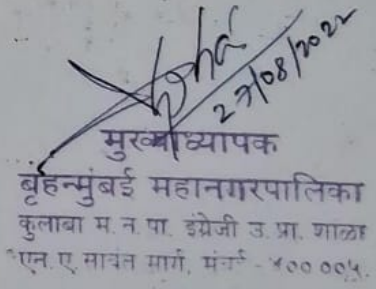 27/08/2022
मुख्याध्यापक
बृहन्मुंबई महानगरपालिका
कुलाबा म. न. पा. इंग्रेजी उ. प्रा. शाळा
एन. ए. सावंत मार्ग, मुंबई - ४०० ००५.